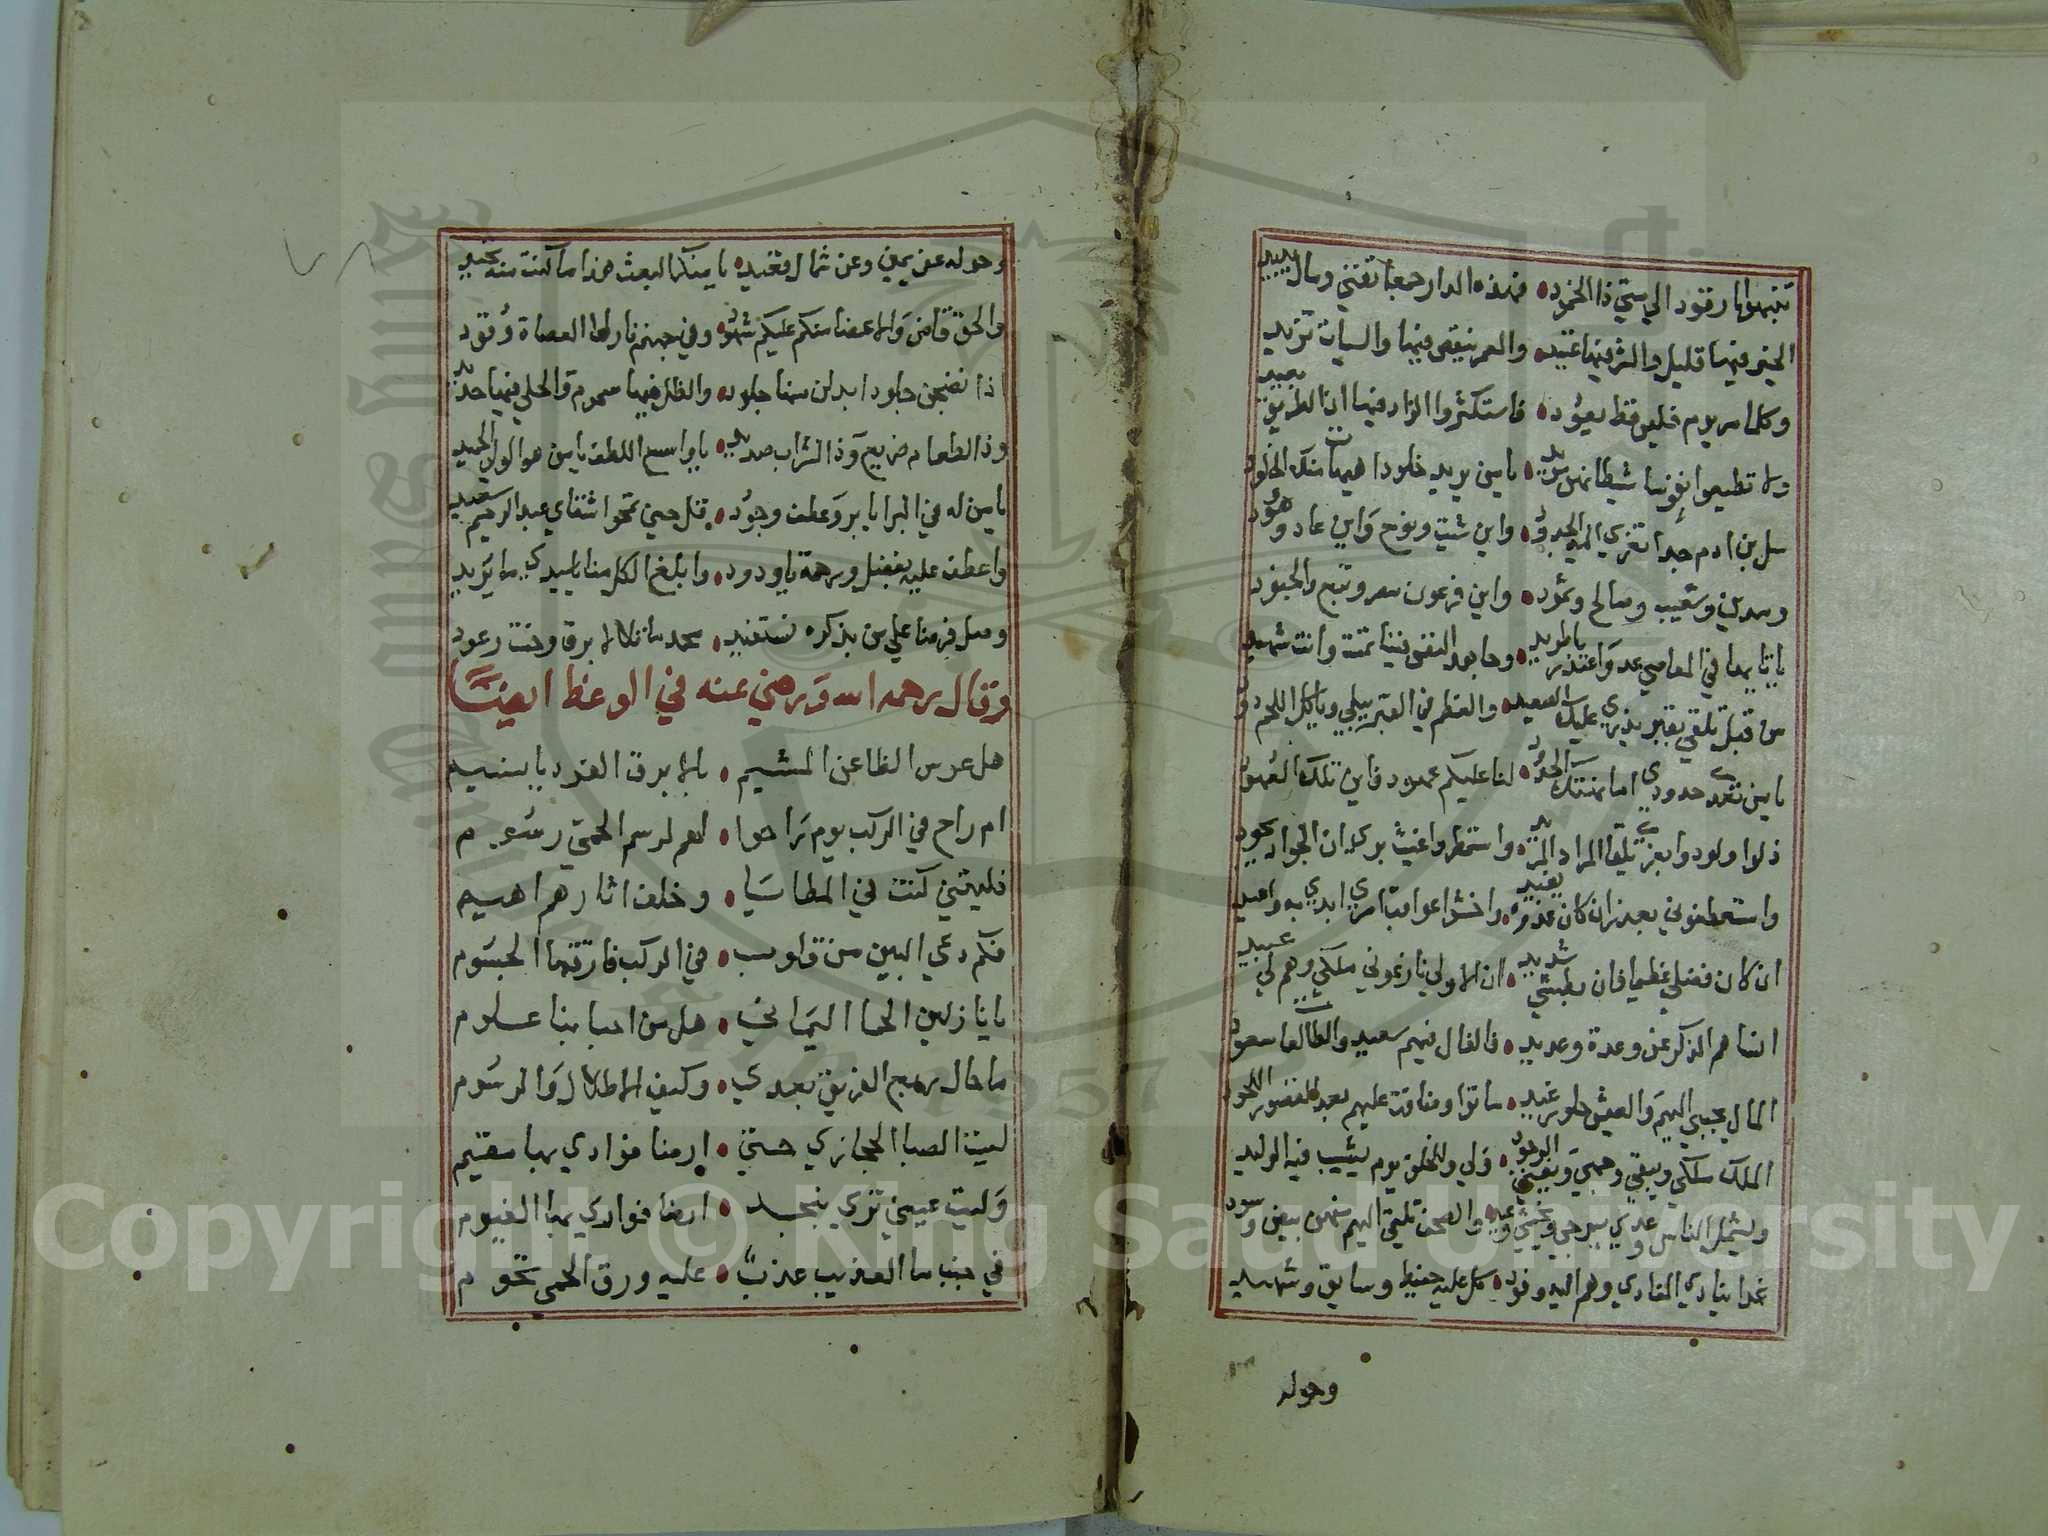 تنبهوا يا رقود الي متي ذا الخمود فهذه الدار جمعا تفني ومال يبيد
الخير فيها قليل والشر فيها عتيد والعمر ينقص فيها والسيات تزيد
وكلما مر يوم فليس قط يعود فاستكثروا الزاد فيها ان الطريق بعيد
ولا تطيعوا نفوسا شيطانهن مريد يا من يريد خلودا هيهات منك الخلود
سل بن ادم جدا تعزي اليه الجدود واين شيت ونوح واين عاد وهود
ومدين وشعيب وصالح وثمود واين فرعون مصر وتبع والجنود
يا تايها في المعاصي عد واعتذر يا طريد وجاهد النفس فينا تمت وانت شهيد
من قبل تلقي بقبر يذري عليك الصعيد والعظم في القبر يبلي وياكل اللحم دود
يا من تعدي حدودي اما نهتك الحدود لنا عليكم عهود فاين تلك العهود
ذلوا ولوذوا بعزي تلقا المراد المزيد واستمطروا غيث بري ان الجواد يجود
واستعطفوني بعذر ان كان عذر يفيد واخشوا عواقب امري ابدي به واعيد
ان كان فضلي عظيما فان بطشي شديد ان الاولي نازعوني ملكي وهم لي عبيد
انساهم الذكر عن وعدة وعديد فالفال فيهم سعيد والطالعات سعود
المال يجبي اليهم والعيش حلو رغيد ماتوا وضاقت عليهم بعد القصور اللحود
الملك ملكي ويبقي وجهي ويفني الوجود ولي وللخلق يوم يشيب فيه الوليد
ويشمل الناس عدلي يرجي ويخشي وعيد والصحف تلقي اليهم منهن بيض وسود
غدا ينادي المنادي وهم اليه وفود كل عليه حفيظ وسايق وشهيد
وحوله
وحوله عن يمين وعن شمال قعيد يا منكر البعث هذا ما كنت منه تحيد
والحق قاض والاعضا منكم عليكم شهود وفي جهنم نار لها العصاة وقود
اذا نضجن جلود ابدلن منها جلود والظل فيها سموم والحلي فيها حديد
وذا الطعام ضريع وذا الشراب صديد يا واسع اللطف يا من هو الولي الحميد
يا من له في البرايا بر وعطف وجود قل حين تمحوا شقاي عبد الرحيم سعيد
واعطف عليه بفضل ورحمة يا ودود وابلغ الكل منا يا سيدي ما يريد
وصل فرضا علي من بذكره نستفيد محمد ما تلالا برق وحنت رعود
وقال رحمه الله ورضي عنه في الوعظ ايضا
هل عرس الظاعن المشيم بالابرق الفرد يا نسيم
ام راح في الركب يوم راحوا لهم لرسم الحمي رسوم
فليتني كنت في المطايا وخلف اثارهم اهيم
فكم دعي البين من قلوب في الركب فارقنها الجسوم
يا نازلين الحما اليماني هل من احبابنا علوم
ما حال ربع الفريق بعدي وكيف الاطلال والرسوم
ليت الصبا الحجازي حتي ارضا فوادي بها مقيم
وليت عيني تري بنجد ارضا فوادي بها الغيوم
في جنب ما العذيب عذب عليه ورق الحمي تحوم
Copyright © King Saud University
1957